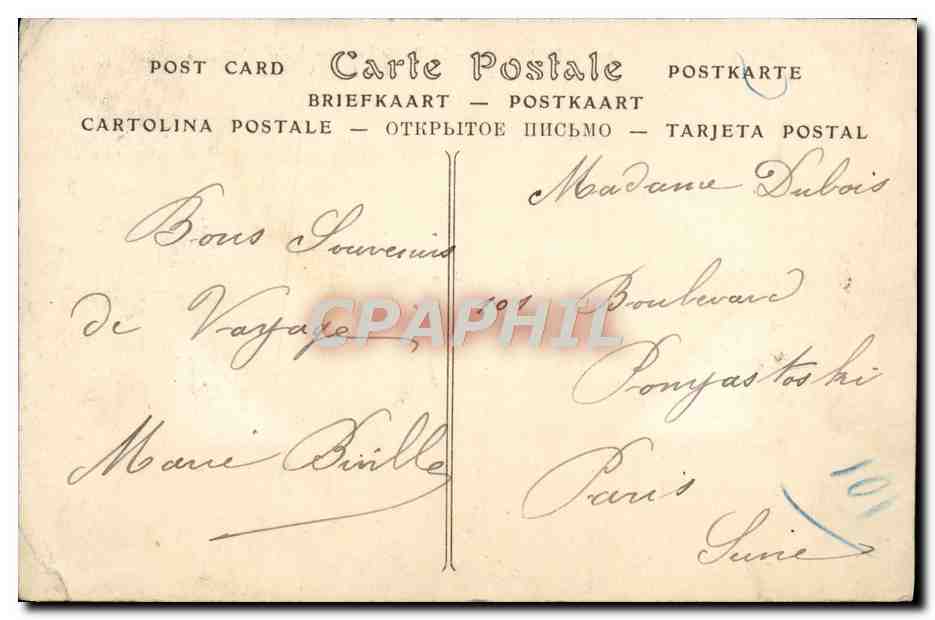 POST CARD Carte Postale POSTKARTE
BRIEFKAART — POSTKAART
CARTOLINA POSTALE — ОТКРЫТОЕ ПИСЬМО — TARJETA POSTAL
Bons Souvenirs
de Voyage
Marie Biville
Madame Dubois
101 Boulevard
Ponyastoski
Paris
Seine
101
CPAPHIL